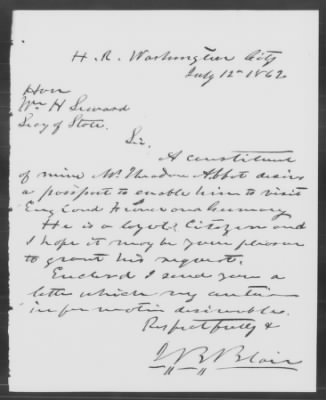 H. R. Washington City
July 12th 1862
Hon
Wm H Seward
Secy of State.
Sir,
A constituent
of mine Mr Theodore Abbot desires
a passport to enable him to visit
England France and Germany
He is a loyal Citizen and
I hope it may be your pleasure
to grant his request.
Enclosed I send you a
letter which may contain
information desirable.
Respectfully &
J B Blair